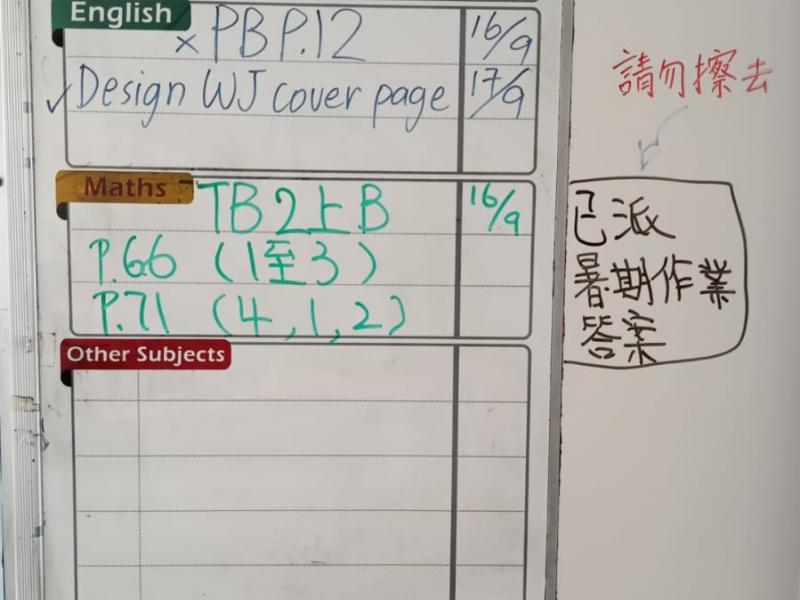 English
× PB P.12 16/9
✓ Design WJ cover page 17/9
Maths
TB 2上B 16/9
P.66 (1至3)
P.71 (4,1,2)
Other Subjects
請勿擦去
已派
暑期作業
答案